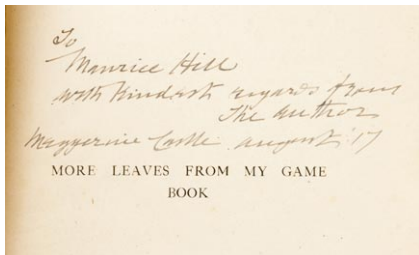 To
Maurice Hill
with kindest regards from
The author
Meggernie Castle august 17
MORE LEAVES FROM MY GAME
BOOK